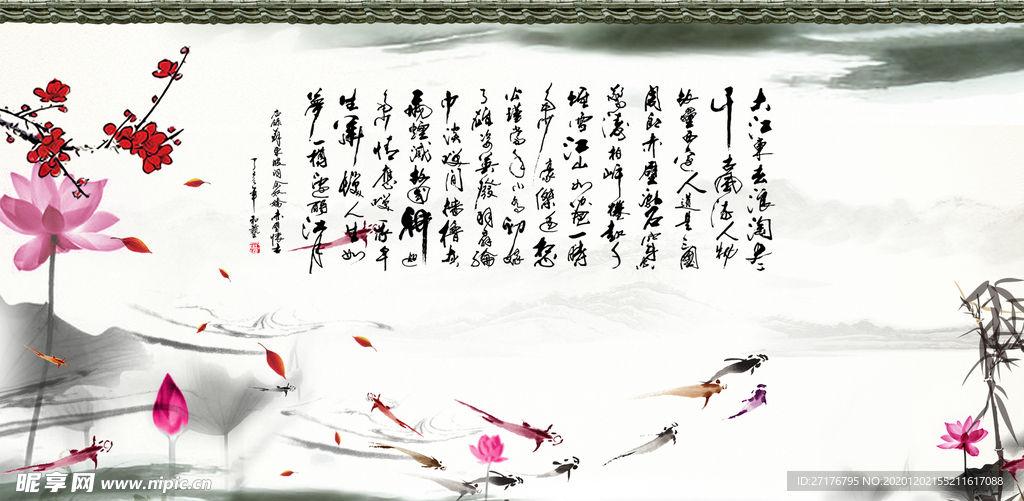 大江東去浪淘盡
千古風流人物
故壘西邊人道是三國
周郎赤壁亂石
驚濤拍岸捲起千
堆雪江山如畫一時
多少豪傑遙想
公瑾當年小喬初嫁
了雄姿英發羽扇綸
巾談笑間檣櫓灰
飛煙滅故國神遊
多情應笑我早
生華髮人生如
夢一樽還酹江月
蘇東坡詞念奴嬌赤壁懷古
昵享网 www.nipic.cn
ID:27176795 NO:20201202155211617088